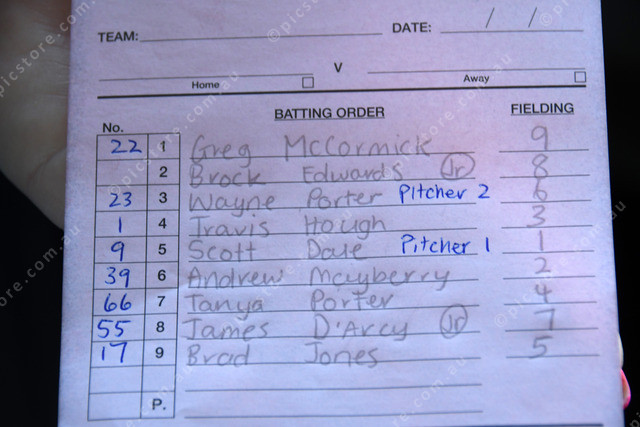 TEAM: DATE: / /
V
Home Away
BATTING ORDER FIELDING
No.
22 1 Greg McCormick 9
2 Brock Edwards Jr 8
23 3 Wayne Porter Pitcher 2 6
1 4 Travis Hough 3
9 5 Scott Dale Pitcher 1 1
39 6 Andrew Mayberry 2
66 7 Tanya Porter 4
55 8 James D'Arcy Jr 7
17 9 Brad Jones 5
P.
©picstore.com.au